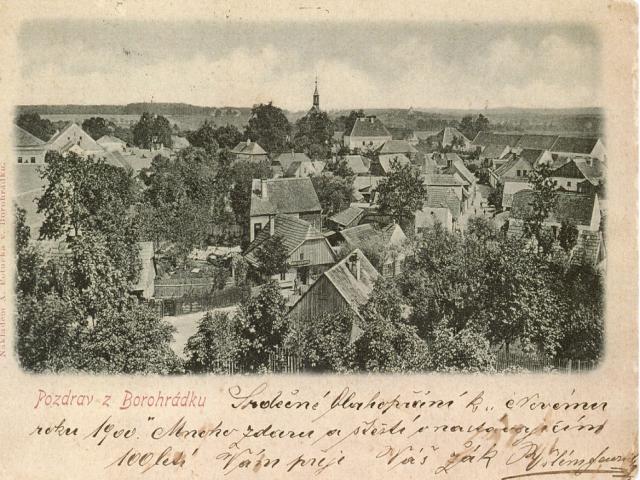 Nákladem A. Poláčka v Borohrádku.
Pozdrav z Borohrádku
Srdečné blahopřání k „Novému
roku 1900." Mnoho zdaru a štěstí v nastávajícím
100letí Vám přeje Váš žák